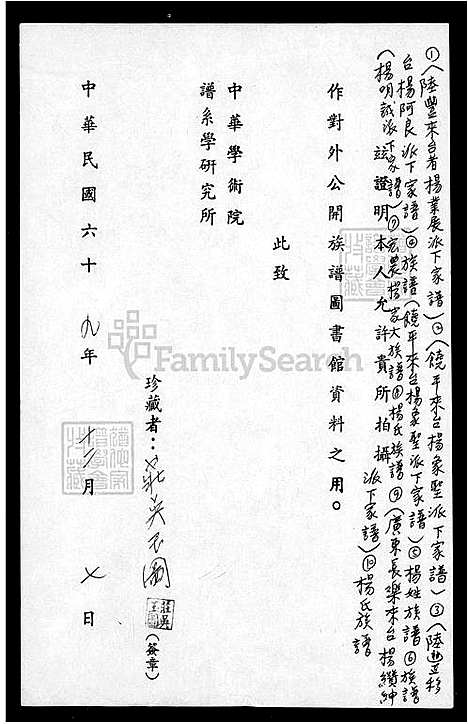 ①(陸豐來台者楊業展派下家譜)②(饒平來台楊象聖派下家譜)③(陸豐移
台楊阿良派下家譜)④族譜(饒平來台楊象聖派下家譜)⑤楊姓族譜⑥族譜
(楊明誠派下家譜)⑦宏農楊家大族譜⑧楊氏族譜⑨(廣東長樂來台楊纘紳
派下家譜)⑩楊氏族譜
玆證明本人允許貴所拍攝
作對外公開族譜圖書館資料之用。
此致
中華學術院
譜系學研究所
珍藏者：莊吳玉圖
(簽章)
中華民國六十九年十二月七日
FamilySearch